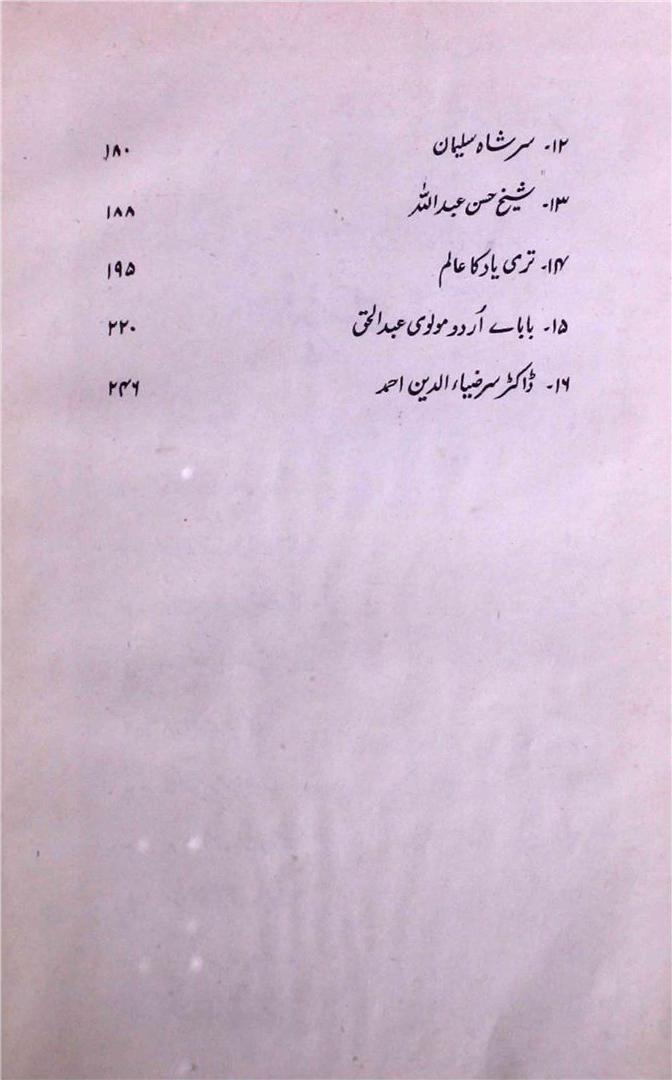 ۱۲- سر شاہ سلیمان ۱۸۰
۱۳- شیخ حسن عبداللہ ۱۸۸
۱۴- تری یاد کا عالم ۱۹۵
۱۵- باباے اُردو مولوی عبدالحق ۲۲۰
۱۶- ڈاکٹر سر ضیاء الدین احمد ۲۴۶